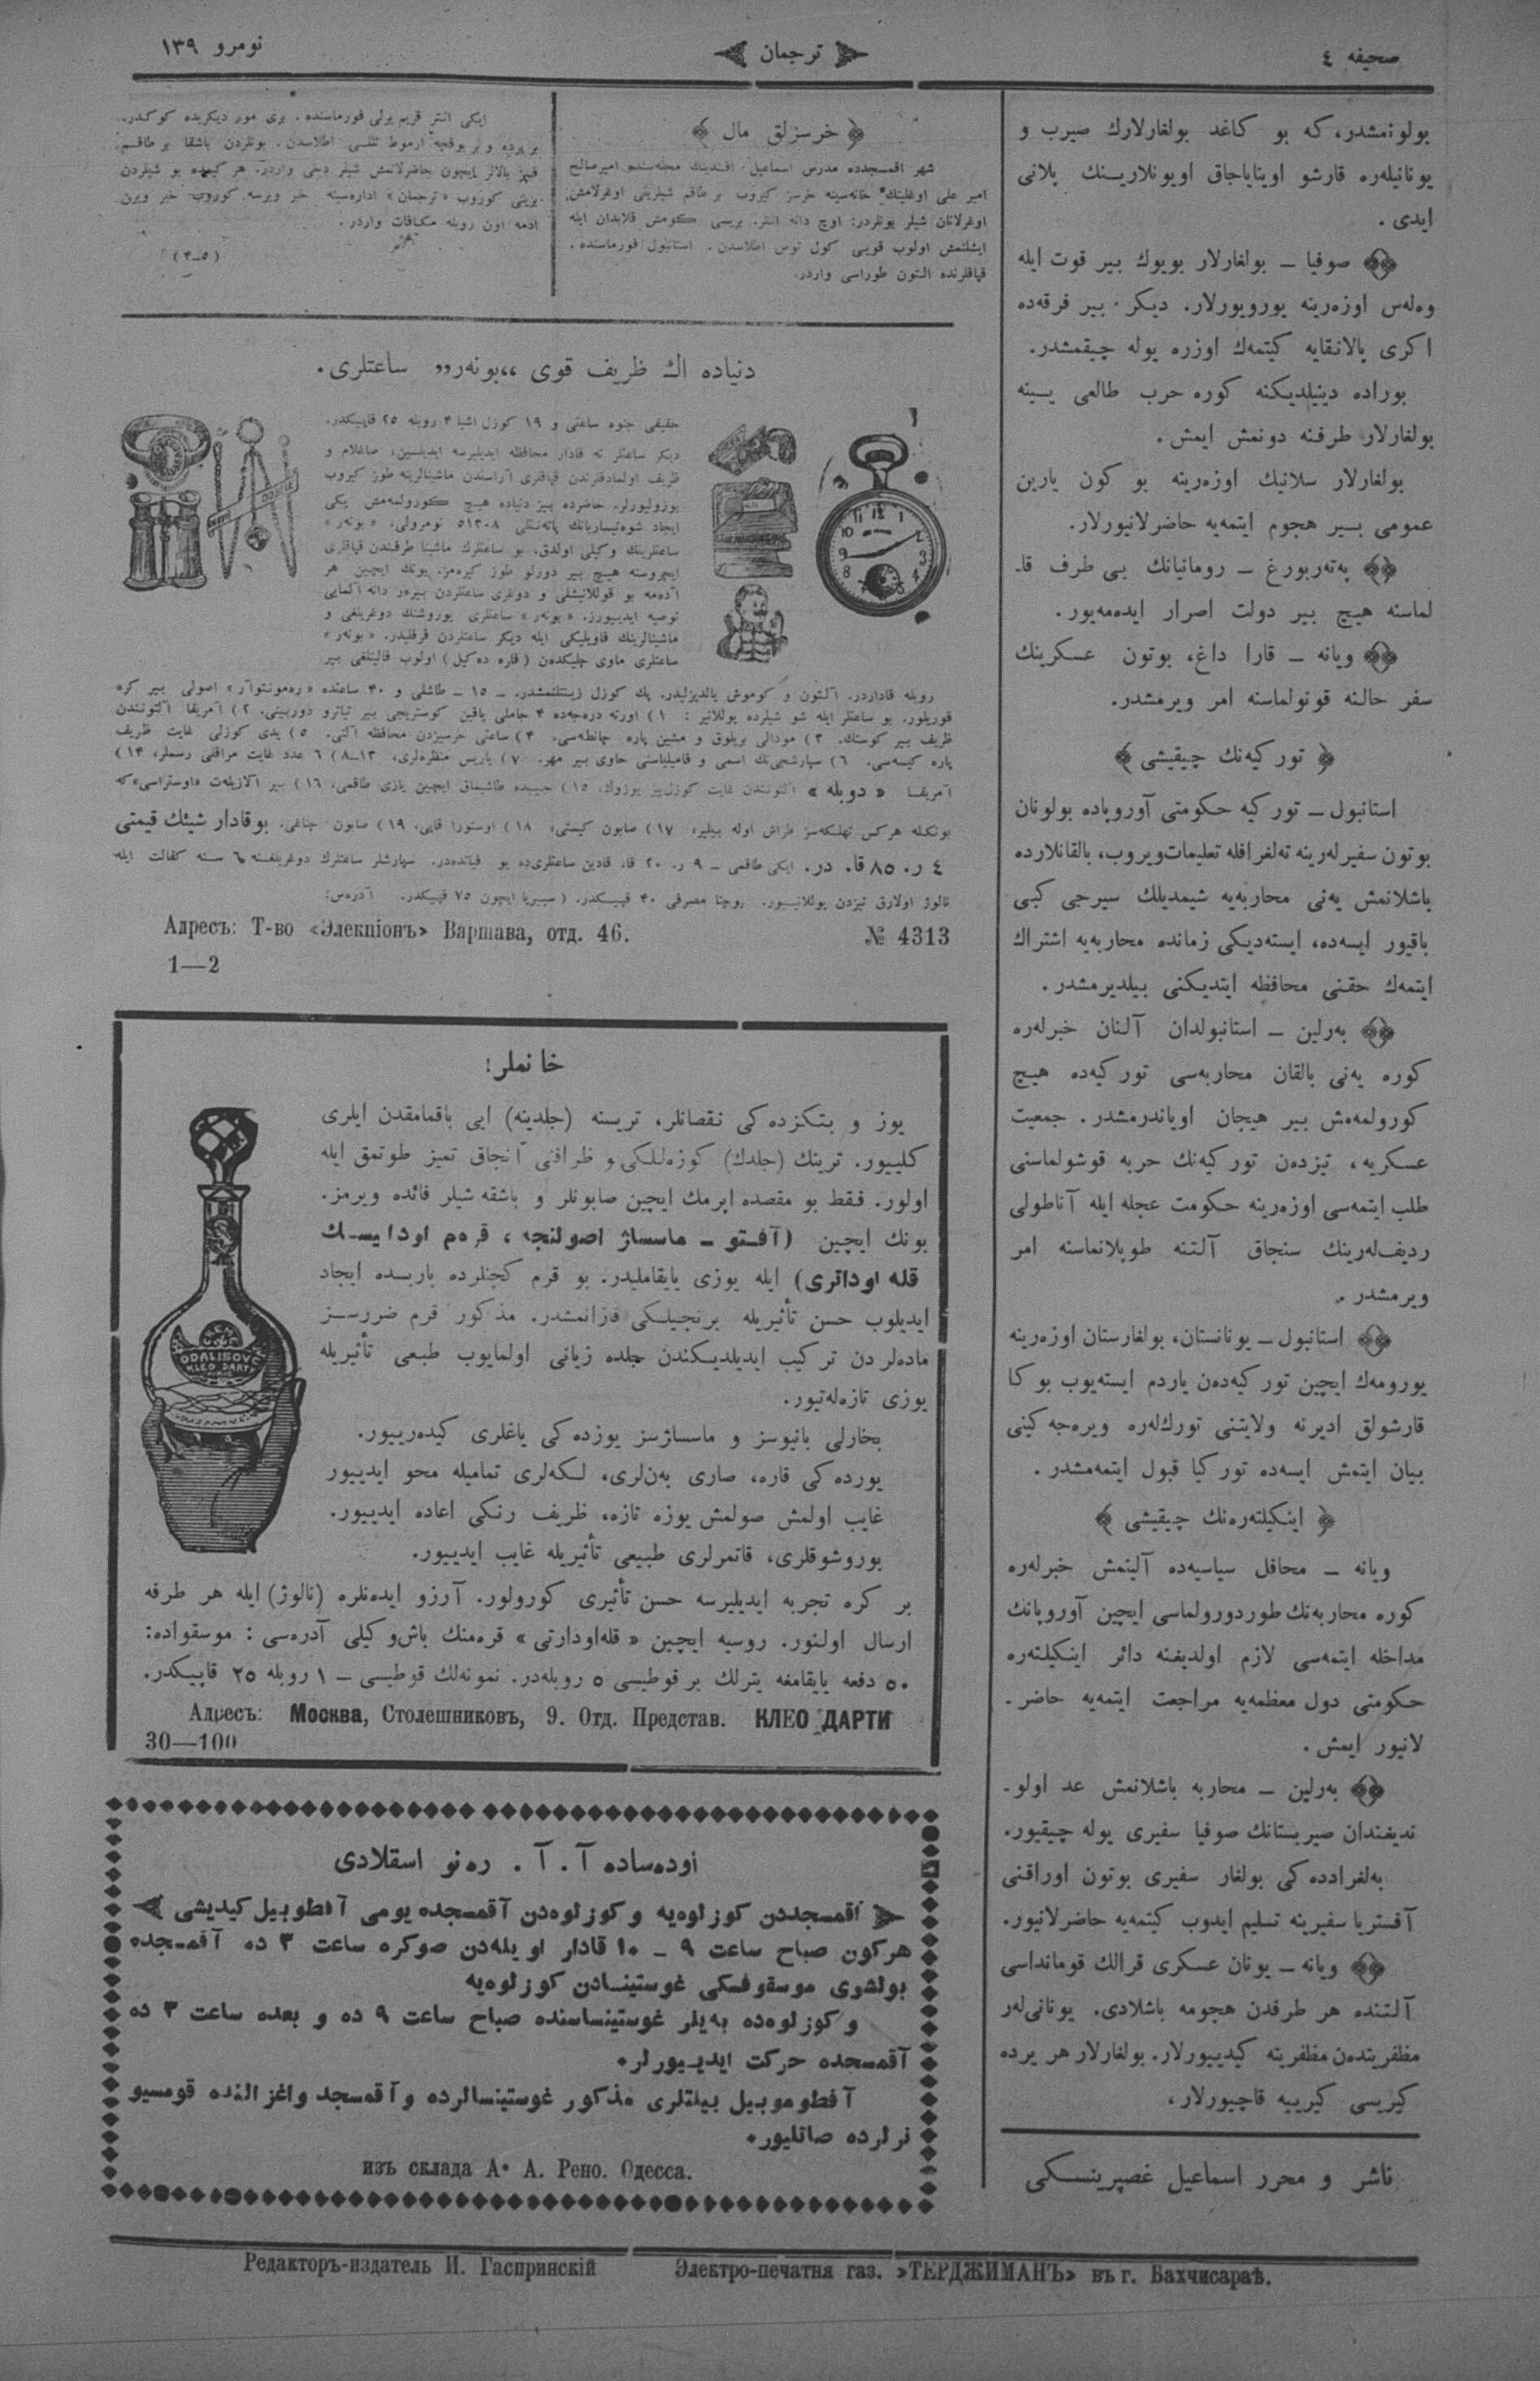 صحیفه ٤
ترجمان
نومرو ١٣٩
بولونمشدر، كه بو كاغد بولغارلارك صيرب و
يونانيلره قارشو اويناياجاق اويونلارينك پلانی
ايدی .
صوفيا ــ بولغارلار بويوك بير قوت ايله
وهلس اوزەرينه يورويورلار. ديكر بير فرقه‌ده
اكری پالانقايه كيتمەك اوزره يوله چيقمشدر.
بوراده دينيلديكنه كوره حرب طالعی يينه
بولغارلار طرفنه دونمش ايمش .
بولغارلار سلانيك اوزەرينه بو كون يارين
عمومی بير هجوم ايتمەيه حاضرلانيورلار.
پەتەربورغ ــ رومانيانك بی طرف قا‌ـ
لماسنه هيچ بير دولت اصرار ايدەمەيور.
ويانه ــ قارا داغ، بوتون عسكرينك
سفر حالنه قونولماسنه امر ويرمشدر.
توركيەنك چيقيشی
استانبول ــ توركيه حكومتی آوروپاده بولونان
بوتون سفيرلەرينه تەلغرافله تعليمات ويروب، بالقانلارده
باشلانمش يەنی محاربەيه شيمديلك سيرجی كبی
باقيور ايسەده، ايستەديكی زمانده محاربەيه اشتراك
ايتمەك حقنی محافظه ايتديكنی بيلديرمشدر .
بەرلين ــ استانبولدان آلنان خبرلەره
كوره يەنی بالقان محاربەسی توركيەده هيچ
كورولمەمش بير هيجان اوياندرمشدر. جمعيت
عسكريه، تيزدەن توركيەنك حربه قوشولماسنی
طلب ايتمەسی اوزەرينه حكومت عجله ايله آناطولی
رديفلەرينك سنجاق آلتنه طوپلانماسنه امر
ويرمشدر .
استانبول ــ يونانستان، بولغارستان اوزەرينه
يورومەك ايچين توركيەدەن ياردم ايستەيوب بوكا
قارشولق اديرنه ولايتنی تورك‌لەره ويرەجەكينی
بيان ايتمش ايسەده توركيا قبول ايتمەمشدر .
اينكيلتەرەنك چيقيشی
ويانه ــ محافل سياسيەده آلينمش خبرلەره
كوره محاربەنك طوردورولماسی ايچين آوروپانك
مداخله ايتمەسی لازم اولديغنه دائر اينكيلتەره
حكومتی دول معظمەيه مراجعت ايتمەيه حاضر ـ
لانيور ايمش .
بەرلين ــ محاربه باشلانمش عد اولو ـ
نديغندان صيربستانك صوفيا سفيری يوله چيقيور.
بەلغراددەكی بولغار سفيری بوتون اوراقنی
آفستريا سفيرينه تسليم ايدوب كيتمەيه حاضرلانيور.
ويانه ــ يونان عسكری قرالك قوماندا‌سی
آلتنده هر طرفدن هجومه باشلادی. يونانی‌لەر
مظفريتدەن مظفريته كيدييورلار. بولغارلار هر يرده
كيريسی كيرييه قاچيورلار،
ناشر و محرر اسماعيل غصپرينسكی
خرسزلق مال
شهر اقمسجدده مدرس اسماعيل افندينك محله‌سنده اميرصالح
امير علی اوغلينك خانەسينه خرسز كيروب بر طاقم شيلرينی اوغرلامش.
اوغرلانان شيلر بونلردر: اوچ دانه انتر. بريسی كومش قلابدان ايله
ايشلنمش اولوب قوبی كول توس اطلاسدن . استانبول فورماسنده .
قپاقلرنده التون طوراسی واردر.
ايكی انتر قريم يرلی فورماسنده . بری مور ديكريده كوكدر.
بر پرده و بر بوقچه آرموط تللی اطلاسدن. بونلردن باشقا بر طاقم
قيز بالالر ايچون حاضرلانمش شيلر دخی واردر. هر كيمده بو شيلردن
برينی كوروب «ترجمان» ادارەسينه خبر ويرسه كوروب خبر ويرن
ادمه اون روبله مكافات واردر .
(٥ــ٣)
دنياده اك ظريف قوی „بونەر” ساعتلری.
حقيقی جنوه ساعتی و ١٩ كوزل اشيا ٤ روبله ٢٥ قاپيكدر.
ديكر ساعتلر نه قادار محافظه ايديليرسه ايديلسين، صاغلام و
ظريف اولمادقلرندن قپاقلری آراسندن ماشينالرينه طوز كيروب
بوزوليورلر. حاضرده بيز دنياده هيچ كورولمەمش يكی
ايجاد شوەتيساريانك پاتەنتلی ٥١٣٠٨ نومرولی، «بونەر»
ساعتلرينك وكيلی اولدق، بو ساعتلرك ماشينا طرفندن قپاقلری
ايچروسنه هيچ بير دورلو طوز كيرەمز. بونك ايچين هر
آدمه بو قوللانيشلی و دوغری ساعتلردن بيرەر دانه آلمايی
توصيه ايدييورز. «بونەر» ساعتلری يوروشنك دوغريلغی و
ماشينالرينك قاويليكی ايله ديكر ساعتلردن فرقليدر. «بونەر»
ساعتلری ماوی چليكدەن (قاره دەكيل) اولوب قالينلغی بير
روبله قاداردر. آلتون و كوموش يالديزليدر. پك كوزل زينتلنمشدر. ــ ١٥ ــ طاشلی و ٣٠ ساعتده «رەمونتوآر» اصولی بير كره
قوريلور. بو ساعتلر ايله شو شيلرده يوللانير : ١) اورته درجەده ٤ جاملی ياقين كوستريجی بير تياترو دوربينی. ٢) آمريقا آلتونندن
ظريف بير كوستك. ٣) مودالی بريلوق و مشين پاره چانطەسی. ٤) ساعتی خرسيزدن محافظه آلتی. ٥) يدی كوزلی غايت ظريف
پاره كيسەسی. ٦) سپارشچی‌نك اسمی و فاميلياسنی حاوی بير مهر. ٧) پاريس منظرەلری، ١٣ــ٨) ٦ عدد غايت مراقلی رسملر، ١٤)
آمريقا «دوبله» آلتونندن غايت كوزل بير يوزوك. ١٥) جيبده طاشيماق ايچين يازی طاقمی، ١٦) بير آلازيلەت «اوستراسی» كه
بونكله هركس تهلكەسز طراش اوله بيلير، ١٧) صابون كيستی، ١٨) اوستورا قايی، ١٩) صابون چناغی. بو قادار شيئك قيمتی
٤ ر. ٨٥ قا. در. ايكی طاقمی ــ ٩ ر. ٢٠ قا. قادين ساعتلری‌ده بو فياتدەدر. سپارشلر ساعتلرك دوغريلغنه ٦ سنه كفالت ايله
نالوژ اولارق تيزدن يوللانييور. پوچتا مصرفی ٣٠ قپيكدر. (سيبريا ايچون ٧٥ قپيكدر. آدرەس:
Адресъ: Т-во «Элекціонъ» Варшава, отд. 46. № 4313
1—2
خانملر!
يوز و بتكزدەكی نقصانلر، تريسنه (جلدينه) ايی باقمامقدن ايلری
كلييور. ترينك (جلدك) كوزەللكی و ظرافتی آنجاق تميز طوتمق ايله
اولور. فقط بو مقصده ايرمك ايچين صابونلر و باشقه شيلر فائده ويرمز.
بونك ايچين (آفتو ــ ماسساژ اصولنجه ، قرەم اودايسك
قله اوداتری) ايله يوزی يايقامليدر. بو قرم كچنلرده پاريسده ايجاد
ايديلوب حسن تأثيريله برنجيلكی قازانمشدر. مذكور قرم ضررسز
مادەلردن تركيب ايديلديكندن جلده زيانی اولمايوب طبعی تأثيريله
يوزی تازەلەتيور.
بخارلی بانيوسز و ماسساژسز يوزدەكی ياغلری كيدەرييور.
يوردەكی قاره، صاری بەن‌لری، لكەلری تماميله محو ايدييور
غايب اولمش صولمش يوزه تازه، ظريف رنكی اعاده ايدييور.
بوروشوقلری، قاتمرلری طبيعی تأثيريله غايب ايدييور.
بر كره تجربه ايديليرسه حسن تأثيری كورولور. آرزو ايدەنلره (نالوژ) ايله هر طرفه
ارسال اولنور. روسيه ايچين «قلەاودارتی» قرەمنك باش وكيلی آدرەسی : موسقواده:
٥٠ دفعه يايقامغه يترلك بر قوطيسی ٥ روبلەدر. نمونەلك قوطيسی ــ ١ روبله ٢٥ قاپيكدر.
ODALISQVE
KLEO DARTI
Адресъ: Москва, Столешниковъ, 9. Отд. Представ. КЛЕО ДАРТИ
30—100
اودەساده آ. آ. رەنو اسقلادی
آقمسجددن كوزلوەيه و كوزلوەدن آقمسجده يومی آفطوبيل كيديشی
هركون صباح ساعت ٩ ــ ١٠ قادار اويلەدن صوكره ساعت ٣ ده آقمسجده
بولشوی موسقوفسكی غوستينسادن كوزلوەيه
و كوزلوەده بەيلر غوستينساسنده صباح ساعت ٩ ده و بعده ساعت ٣ ده
آقمسجده حركت ايدييورلر.
آفطوموبيل بيلتلری مذكور غوستينسالرده و آقمسجد واغزالنده قومسيو
نرلرده صاتليور.
изъ склада А. А. Рено. Одесса.
Редакторъ-издатель И. Гаспринскій
Электро-печатня газ. »ТЕРДЖИМАНЪ» въ г. Бахчисараѣ.